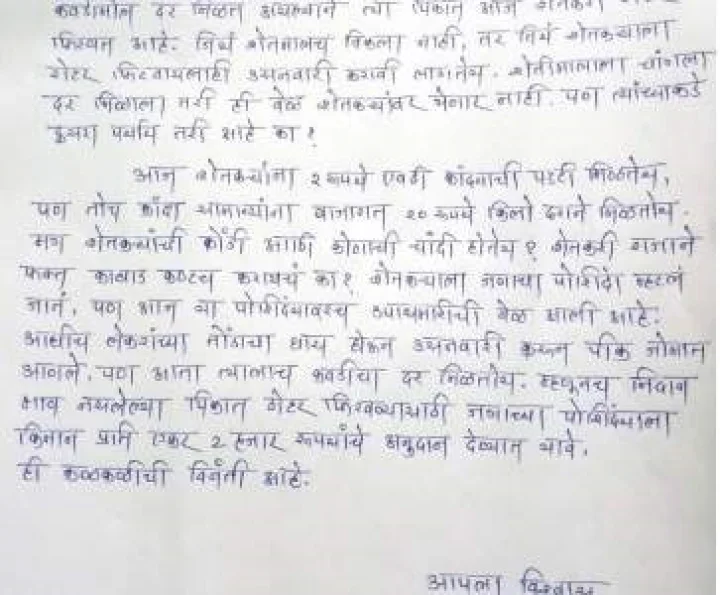 कवडीमोल दर मिळत असल्याने त्या पिकात आज शेतकरी
फिरवत आहे. तिथं शेतमालच विकला नाही, तर तिथं शेतकऱ्याला
रोटर फिरवायलाही उसनवारी करावी लागतेय. शेतीमालाला चांगला
दर मिळाला तरी ही वेळ शेतकऱ्यांवर येणार नाही. पण त्यांच्याकडे
दुसरा पर्याय तरी आहे का?
आज शेतकऱ्यांना २ रूपये एवढी कांद्याची पट्टी मिळतेय,
पण तोच कांदा सामान्यांना बाजारात २० रूपये किलो दराने मिळतोय.
मग शेतकऱ्यांची कोंडी आणि कोणाची चांदी होतेय? शेतकरी राजाने
फक्त काबाड कष्टच करायचं का? शेतकऱ्याला जगाचा पोशिंदा म्हटलं
जातं, पण आज या पोशिंद्यावरच उपासमारीची वेळ आली आहे.
आधीच लेकरांच्या तोंडाचा घास घेऊन उसनवारी करून पीक जोमात
आणले. पण आता त्यालाच कवडीचा दर मिळतोय. म्हणूनच निदान
भाव नसलेल्या पिकात रोटर फिरवण्यासाठी जगाच्या पोशिंद्याला
किमान प्रति एकर 2 हजार रूपयांचे अनुदान देण्यात यावे.
ही कळकळीची विनंती आहे.
आपला विश्वासू